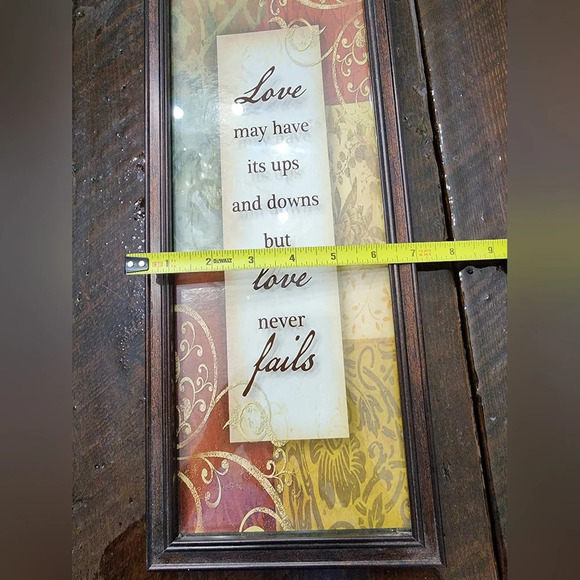 Love
may have
its ups
and downs
but
1 2 DEWALT 3 4 5 6 7 8 9
love
never
fails